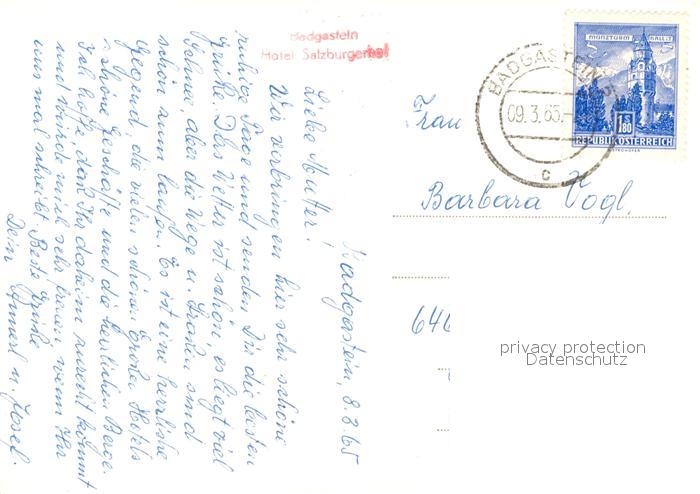 Badgastein
Hotel Salzburgerhof
Badgastein, 8.3.65
Liebe Mutter!
Wir verbringen hier sehr schöne
ruhige Tage und senden Dir die besten
Grüße. Das Wetter ist schön, es liegt viel
Schnee, aber die Wege u. Straßen sind
schön zum laufen. Es ist eine herrliche
Gegend, die vielen schönen Großen Hotels
schöne Geschäfte und die herrlichen Berge.
Ich hoffe, daß Ihr daheim zurecht kommt
und würde mich sehr freuen wenn Ihr
uns mal schreibt. Beste Grüße
Dein Annerl u. Josef.
MÜNZTURM HALL i. T.
S
1S80
REPUBLIK ÖSTERREICH
BADGASTEIN
09.3.65
c
Frau
Barbara Vogl.
646
privacy protection
Datenschutz